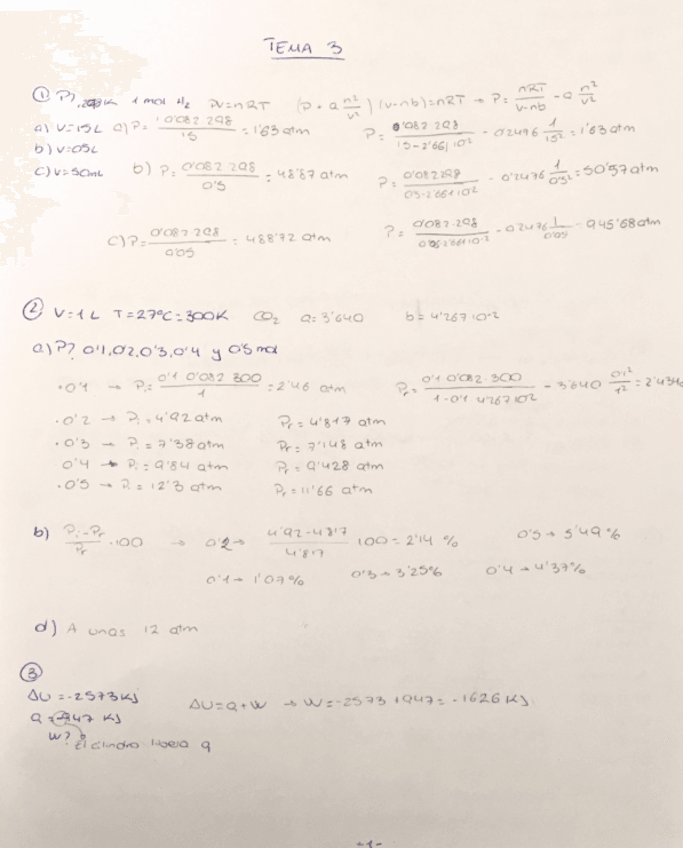 TEMA 3
① P?, 298K 1 mol H₂ PV=nRT (P + a n²/v²) (v-nb)=nRT → P= nRT/v-nb - a n²/v²
a) V=15L a) P= 0'082 298/15 = 1'63 atm P= 0'082 298/15-2'661 10² - 0'2476 1/15² = 1'63 atm
b) V=05L
c) V=50mL b) P= 0'082 298/0'5 = 48'87 atm P= 0'082 298/05-2'661 10² - 0'2476 1/0'5² = 50'57 atm
c) P= 0'082 298/0'05 = 488'72 atm P= 0'082·298/0'05 2'661 10⁻² - 02476 1/0'05² = 945'68 atm
② V=1L T=27ºC=300K CO₂ a=3'640 b=4'267 10⁻²
a) P? 0'1, 0'2, 0'3, 0'4 y 0'5 mol
·0'1 → Pi= 0'1 0'082 300/1 = 2'46 atm Pr= 0'1 0'082·300/1-0'1 4'267 10² - 3'640 0'1²/1² = 2'434
·0'2 → Pi = 4'92 atm Pr= 4'817 atm
·0'3 → Pi = 7'38 atm Pr= 7'148 atm
0'4 → Pi = 9'84 atm Pr= 9'428 atm
·0'5 → Pi = 12'3 atm Pr= 11'66 atm
b) Pi-Pr/Pr ·100 → 0'2→ 4'92-4'817/4'817 100 = 2'14 % 0'5→ 5'49 %
0'1→ 1'07% 0'3→ 3'25% 0'4→ 4'37%
d) A unas 12 atm
③
ΔU = -2573 KJ ΔU= Q+W → W= -2573 +947 = -1626 KJ
Q = -947 KJ
W? El cilindro libera q
-1-